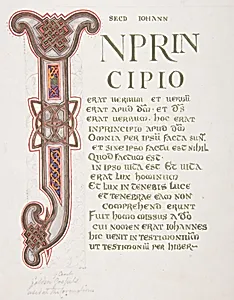 SECD IOHANN
INPRIN
CIPIO
ERAT UERBUM · ET UERBŪ
ERAT APUD DM̄ · ET DS̄
ERAT UERBUM · HOC ERAT
INPRINCIPIO APUD DM̄
OMNIA PER IPSŪ FACTA SUNT
ET SINE IPSO FACTU EST NIHIL
QUOD FACTUM EST ·
IN IPSO UITA EST · ET UITA
ERAT LUX HOMINUM
ET LUX IN TENEBIS LUCE
ET TENEBRAE EAM NON
COMPREHEND ERUNT
FUIT HOMO MISSUS A DŌ
CUI NOMEN ERAT IOHANNES
HIC UENIT IN TESTIMONIUM
UT TESTIMONIŪ PER HIBER